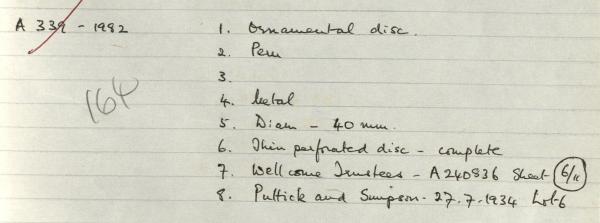 A 339 - 1982
1. Ornamental disc.
2. Peru
3.
164
4. Metal
5. Diam - 40 mm.
6. Thin perforated disc - complete
7. Wellcome Trustees - A240836 Sheet 6/11
8. Puttick and Simpson - 27.7.1934 Lot 6